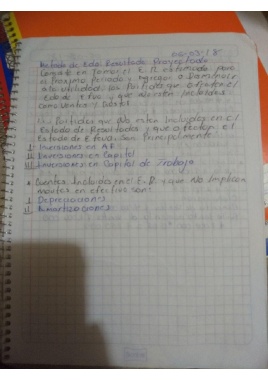 Metodo de Edo. Resultado Proyectado
Consiste en Tomar el E.R estimado para
el Proximo periodo y agregar o Disminuir
a la Utilidad las Partidas que afectan el
Edo de Efvo y que no esten Incluidas
como Ventas y Costos
Las Partidas que No esten Incluidas en el
Estado de Resultados y que afectan el
Estado de Efvo. son Principalmente
I Inversiones en A.F.
II en Capital
III Inversiones en Capital de Trabajo
Cuentas Incluidas en el E.R. y que No Implican
en efectivo son:
I Depreciaciones
II Amortizaciones